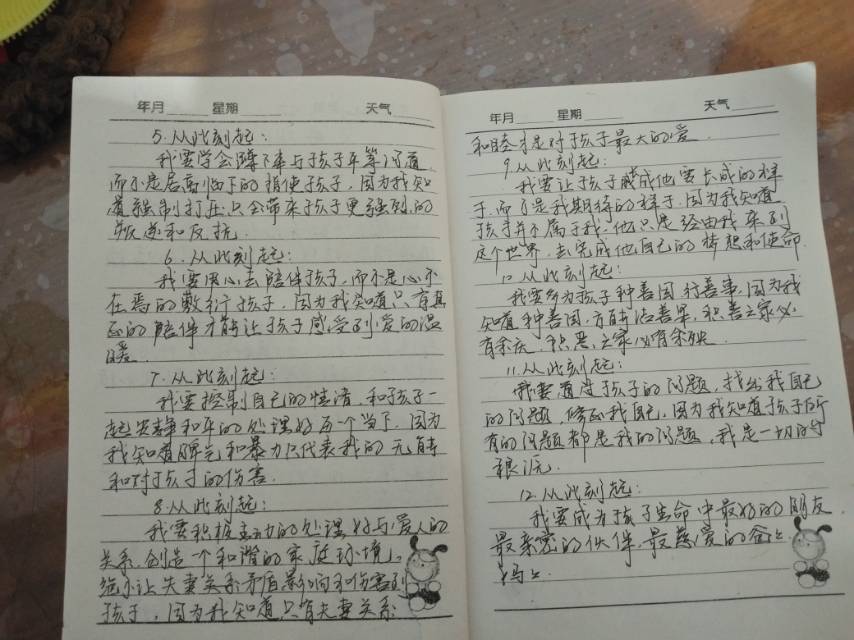 年月 星期 天气
5.从此刻起：
我要学会蹲下来与孩子平等沟通
而不是居高临下的指使孩子，因为我知
道强制打压只会带来孩子更强烈的
叛逆和反抗.
6.从此刻起：
我要用心去陪伴孩子，而不是心不
在焉的敷衍孩子，因为我知道只有真
正的陪伴才能让孩子感受到爱的温
暖.
7.从此刻起：
我要控制自己的情绪，和孩子一
起安静和平的处理好每一个当下，因为
我知道脾气和暴力只代表我的无能
和对孩子的伤害.
8.从此刻起：
我要积极主动的处理好与爱人的
关系，创造一个和谐的家庭环境，
绝不让夫妻关系矛盾影响和伤害到
孩子，因为我知道只有夫妻关系
年月 星期 天气
和睦才是对孩子最大的爱.
9.从此刻起：
我要让孩子成他要长成的样
子，而不是我期待的样子，因为我知道
孩子并不属于我，他只是经由我来到
这个世界，去完成他自己的梦想和使命.
10.从此刻起：
我要为孩子种善因，行善事，因为我
知道种善因，方能结善果，积善之家必
有余庆，积恶之家必有余殃.
11.从此刻起：
我要通过孩子的问题，找出我自己
的问题，修正我自己，因为我知道孩子所
有的问题都是我的问题，我是一切的
根源.
12.从此刻起：
我要成为孩子生命中最好的朋友，
最亲密的伙伴，最慈爱的爸爸
妈妈